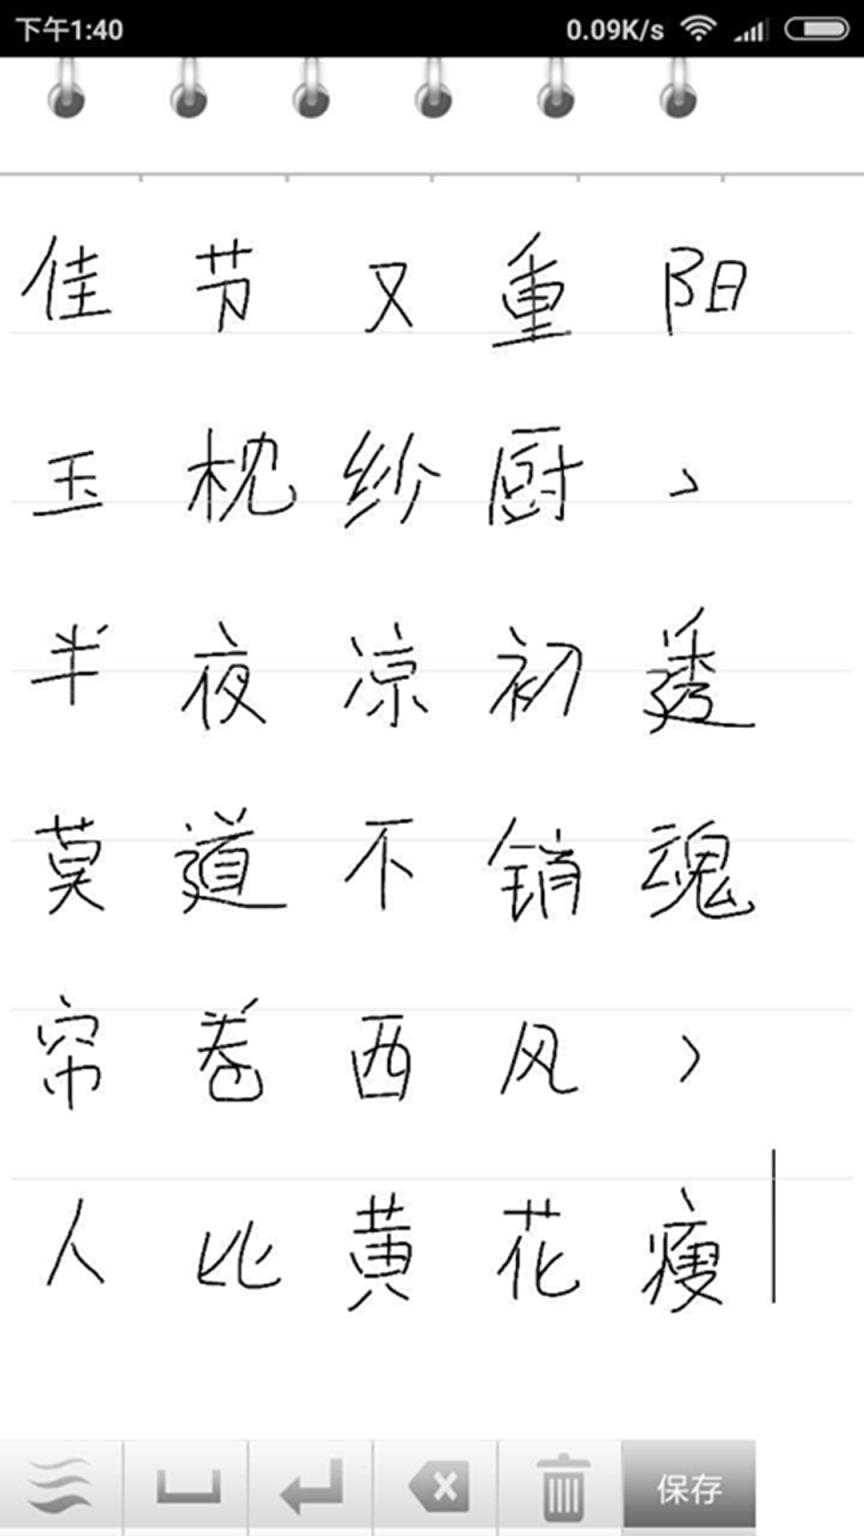 下午1:40 0.09K/s
佳节又重阳
玉枕纱厨，
半夜凉初透
莫道不销魂
帘卷西风，
人比黄花瘦
保存